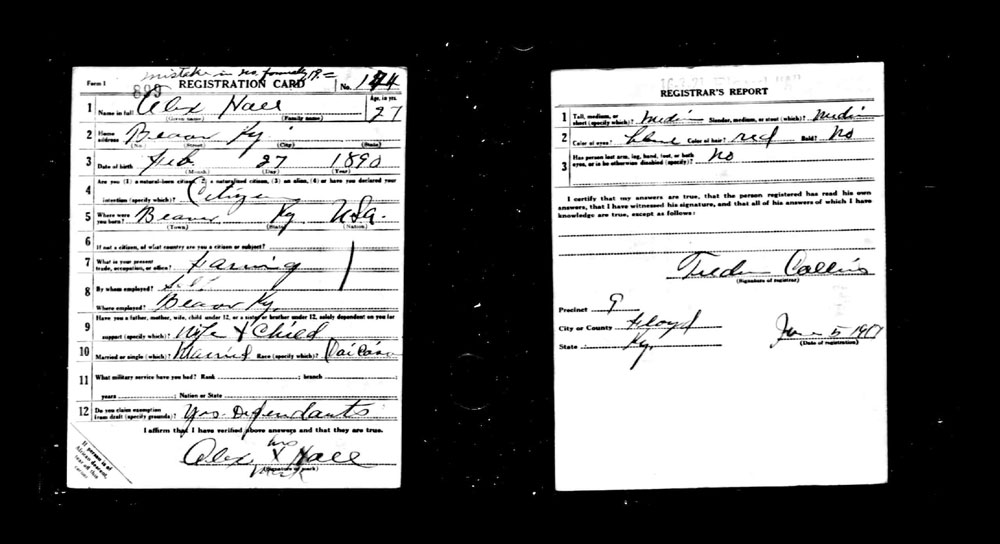 mistake in no. formally 19 =
Form 1 899 REGISTRATION CARD No. 144
1 Name in full Alex Hall Age, in yrs. 27
(Given name) (Family name)
2 Home address Beaver Ky.
(No.) (Street) (City) (State)
3 Date of birth Feb. 27 1890
(Month) (Day) (Year)
4 Are you (1) a natural-born citizen, (2) a naturalized citizen, (3) an alien, (4) or have you declared your
intention (specify which)? Citizen
5 Where were you born? Beaver Ky U.S.A.
(Town) (State) (Nation)
6 If not a citizen, of what country are you a citizen or subject?
7 What is your present trade, occupation, or office? Farming
8 By whom employed? Self
Where employed? Beaver Ky.
9 Have you a father, mother, wife, child under 12, or a sister or brother under 12, solely dependent on you for
support (specify which)? Wife & Child
10 Married or single (which)? Married Race (specify which)?
11 What military service have you had? Rank ; branch
years ; Nation or State
12 Do you claim exemption from draft (specify grounds)? Yes. Dependants
I affirm that I have verified above answers and that they are true.
his
Alex X Hall
(Signature or mark)
mark
If person is of
African descent,
tear off this
corner
REGISTRAR'S REPORT
1 Tall, medium, or short (specify which)? Medi Slender, medium, or stout (which)? Medi
2 Color of eyes? Color of hair? red Bald? No
3 Has person lost arm, leg, hand, foot, or both eyes, or is he otherwise disabled (specify)? No
I certify that my answers are true, that the person registered has read his own
answers, that I have witnessed his signature, and that all of his answers of which I have
knowledge are true, except as follows:
Collins
(Signature of registrar)
Precinct 9
City or County Floyd
State Ky.
June 5 1917
(Date of registration)